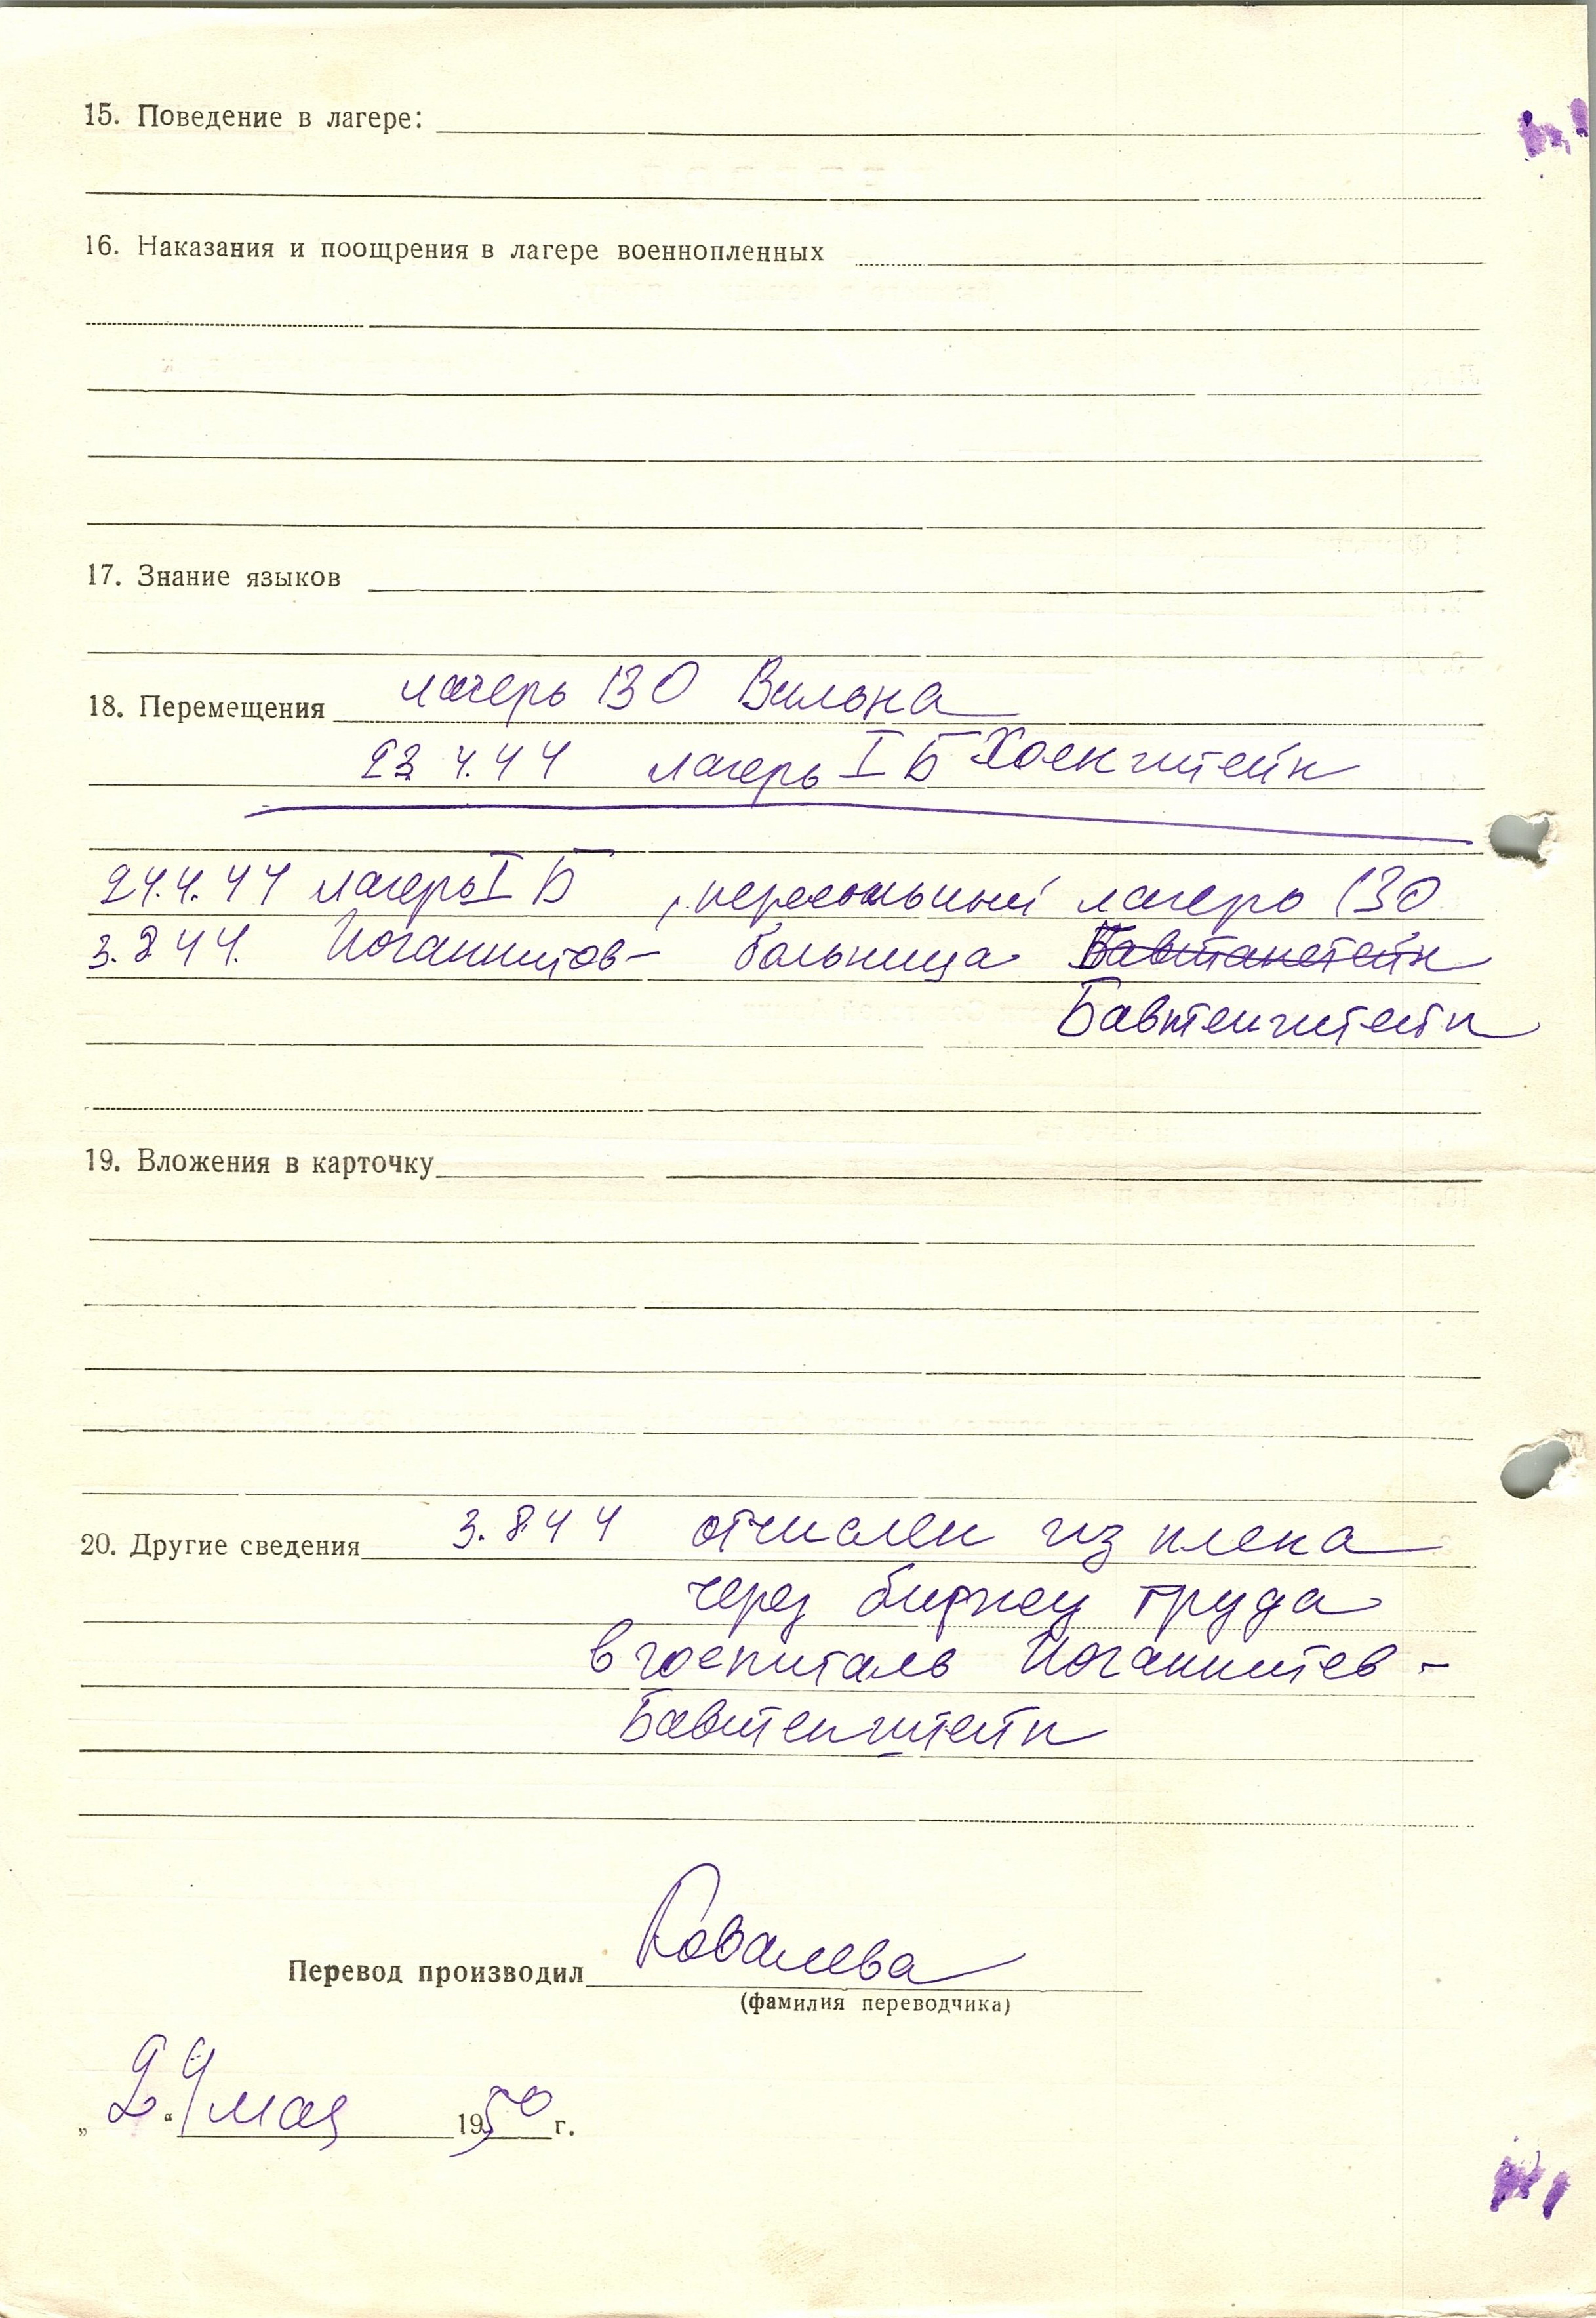 15. Поведение в лагере:
16. Наказания и поощрения в лагере военнопленных
17. Знание языков
18. Перемещения лагерь 130 Вильна
23 4.44 лагерь I Б Хоенштейн
24.4.44 лагерь I Б , пересыльный лагерь 130
3.8 44. Иоганнитов- больница Бавтанстейн
Бавтенштейн
19. Вложения в карточку
20. Другие сведения 3.8 44 отчислен из плена
через биржу труда
в госпиталь Иоганнитев -
Бавтенштейн
Перевод производил Ковалева
(фамилия переводчика)
„29“ мая 1950 г.